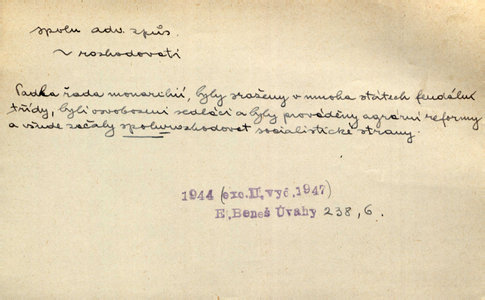 spolu adv. způs.
v rozhodovati
Padla řada monarchií, byly sraženy v mnoha státech feudální
třídy, byli osvobozeni sedláci a byly prováděny agrární reformy
a všude začaly spolurozhodovat socialistické strany.
1944 (exc.II.vyč.1947)
E. Beneš Úvahy 238, 6.